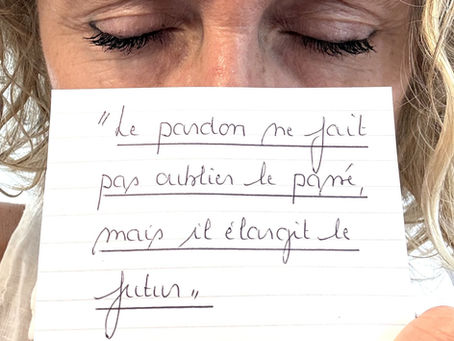 "Le pardon ne fait
pas oublier le passé,
mais il élargit le
futur"